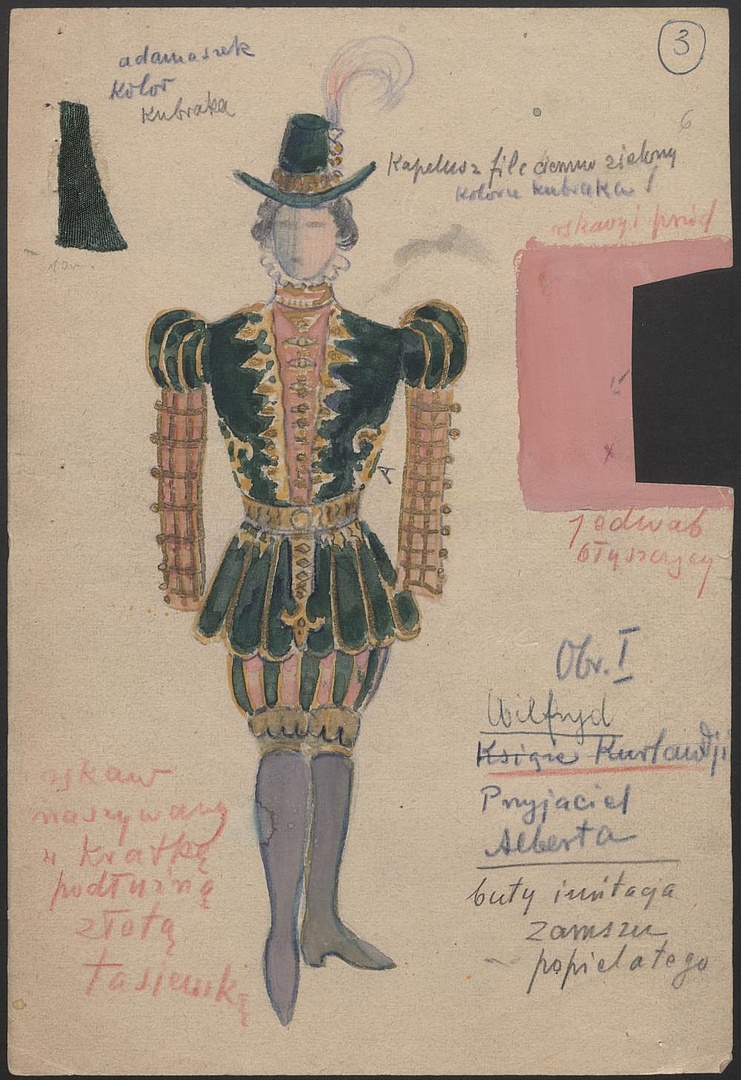 3
adamaszek
kolor
kubraka
6
Kapelusz filc ciemno zielony
koloru kubraka!
rękawy i przód
jedwab
błyszczący
A
Obr. I
Wilfryd
Książe Kurlandji
Przyjaciel
Alberta
buty imitacja
zamszu
popielatego
rękaw
naszywany
w kratkę
podłużną
złotą
tasiemką